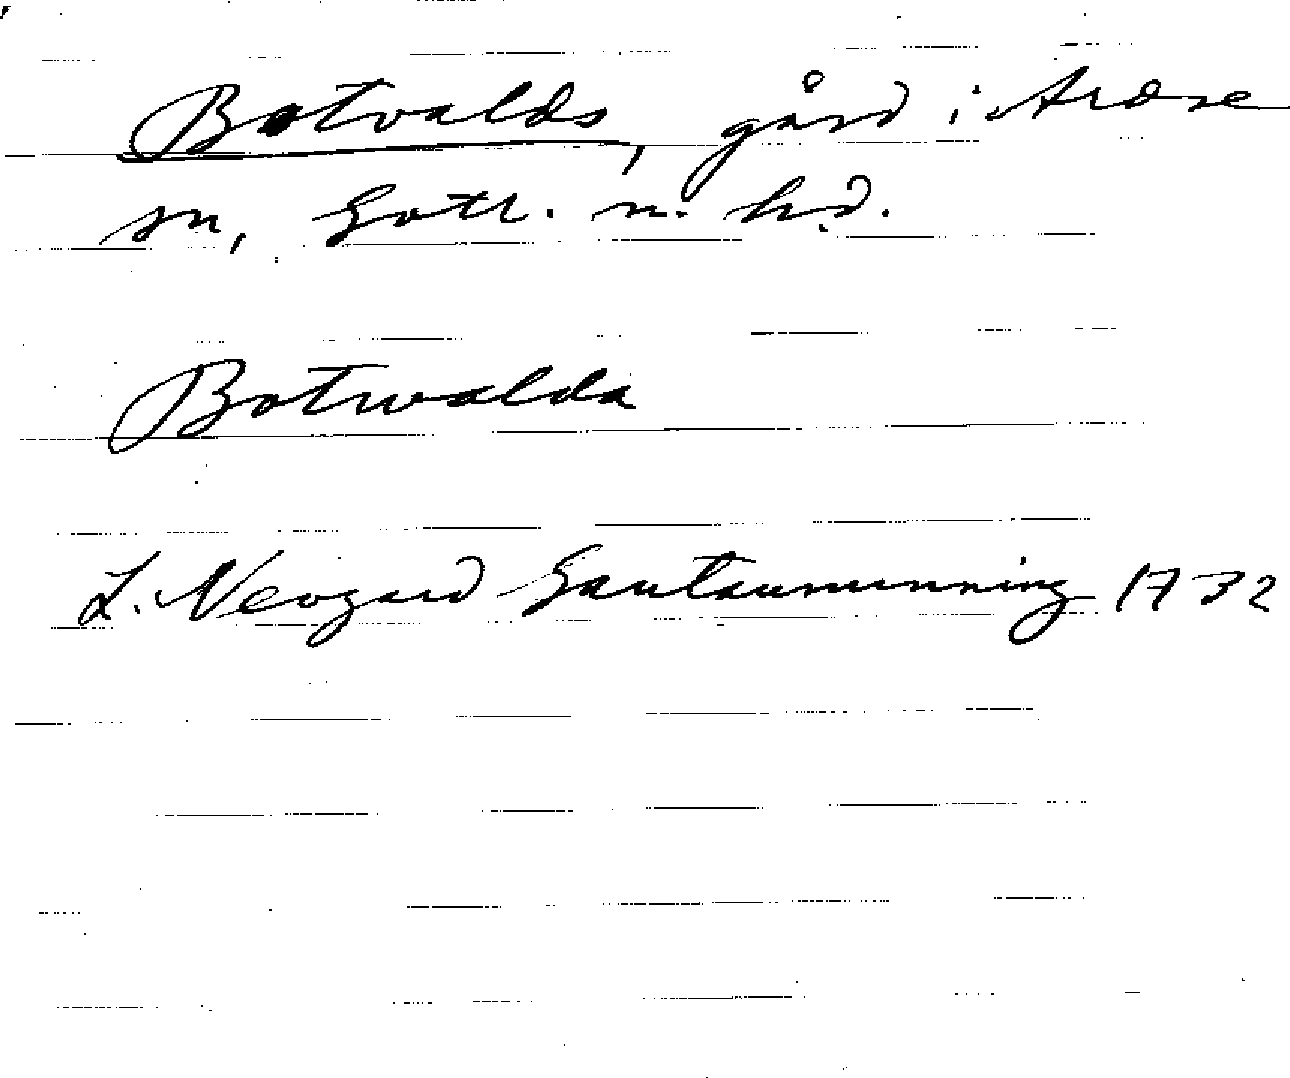 Botvalds, gård i Ardre
sn, Gotl. n. hd.
Botwalda
L. Neogard Gautauminning 1732